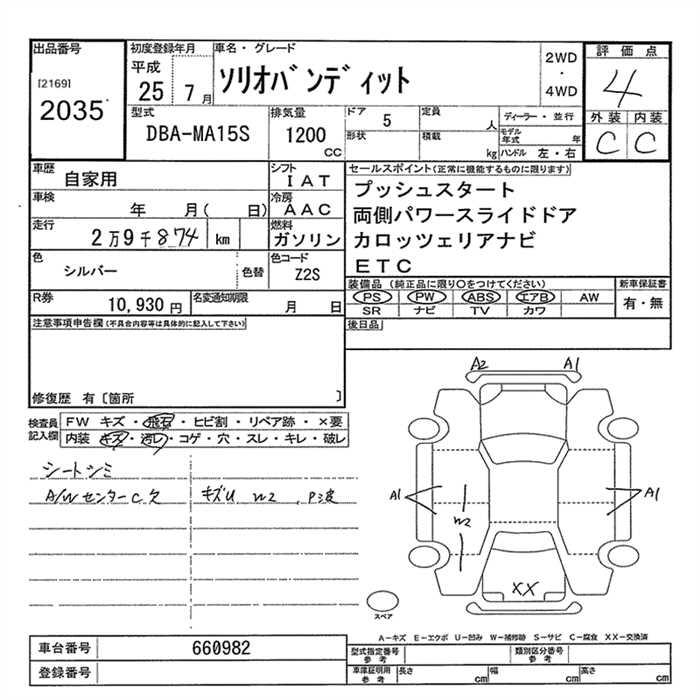 出品番号
[2169]
2035
初度登録年月
平成
25 7月
車名・グレード
ソリオバンディット
2WD
・
4WD
評価点
4
外装 内装
C C
型式
DBA-MA15S
排気量
1200
CC
ドア 5
形状
定員 人
積載 kg
ディーラー・並行
モデル年式 年
ハンドル 左・右
車歴
自家用
シフト
IAT
車検
年 月( 日)
冷房
AAC
走行
2万9千874 km
燃料
ガソリン
色
シルバー
色替
色コード
Z2S
セールスポイント(正常に機能するものに限ります)
プッシュスタート
両側パワースライドドア
カロッツェリアナビ
ETC
R券
10,930円
名変通知期限
月 日
装備品(純正品に限り○をつけてください)
PS PW ABS エアB AW
SR ナビ TV カワ
新車保証書
有・無
注意事項申告欄(不具合内容等は具体的に記入して下さい)
後日品
修復歴 有〔箇所 〕
検査員
記入欄
FW キズ・飛石・ヒビ割・リペア跡・×要
内装・キズ・汚レ・コゲ・穴・スレ・キレ・破レ
シートシミ
A/Wセンターc欠
キズU W2、P3波
A2 A1
A1 W2 A1
XX
スペア
A-キズ E-エクボ U-凹み W-補修跡 S-サビ C-腐食 XX-交換済
車台番号 660982
登録番号
型式指定番号
参考
類別区分番号
参考
車庫証明用
参考
長さ cm 幅 cm 高さ cm